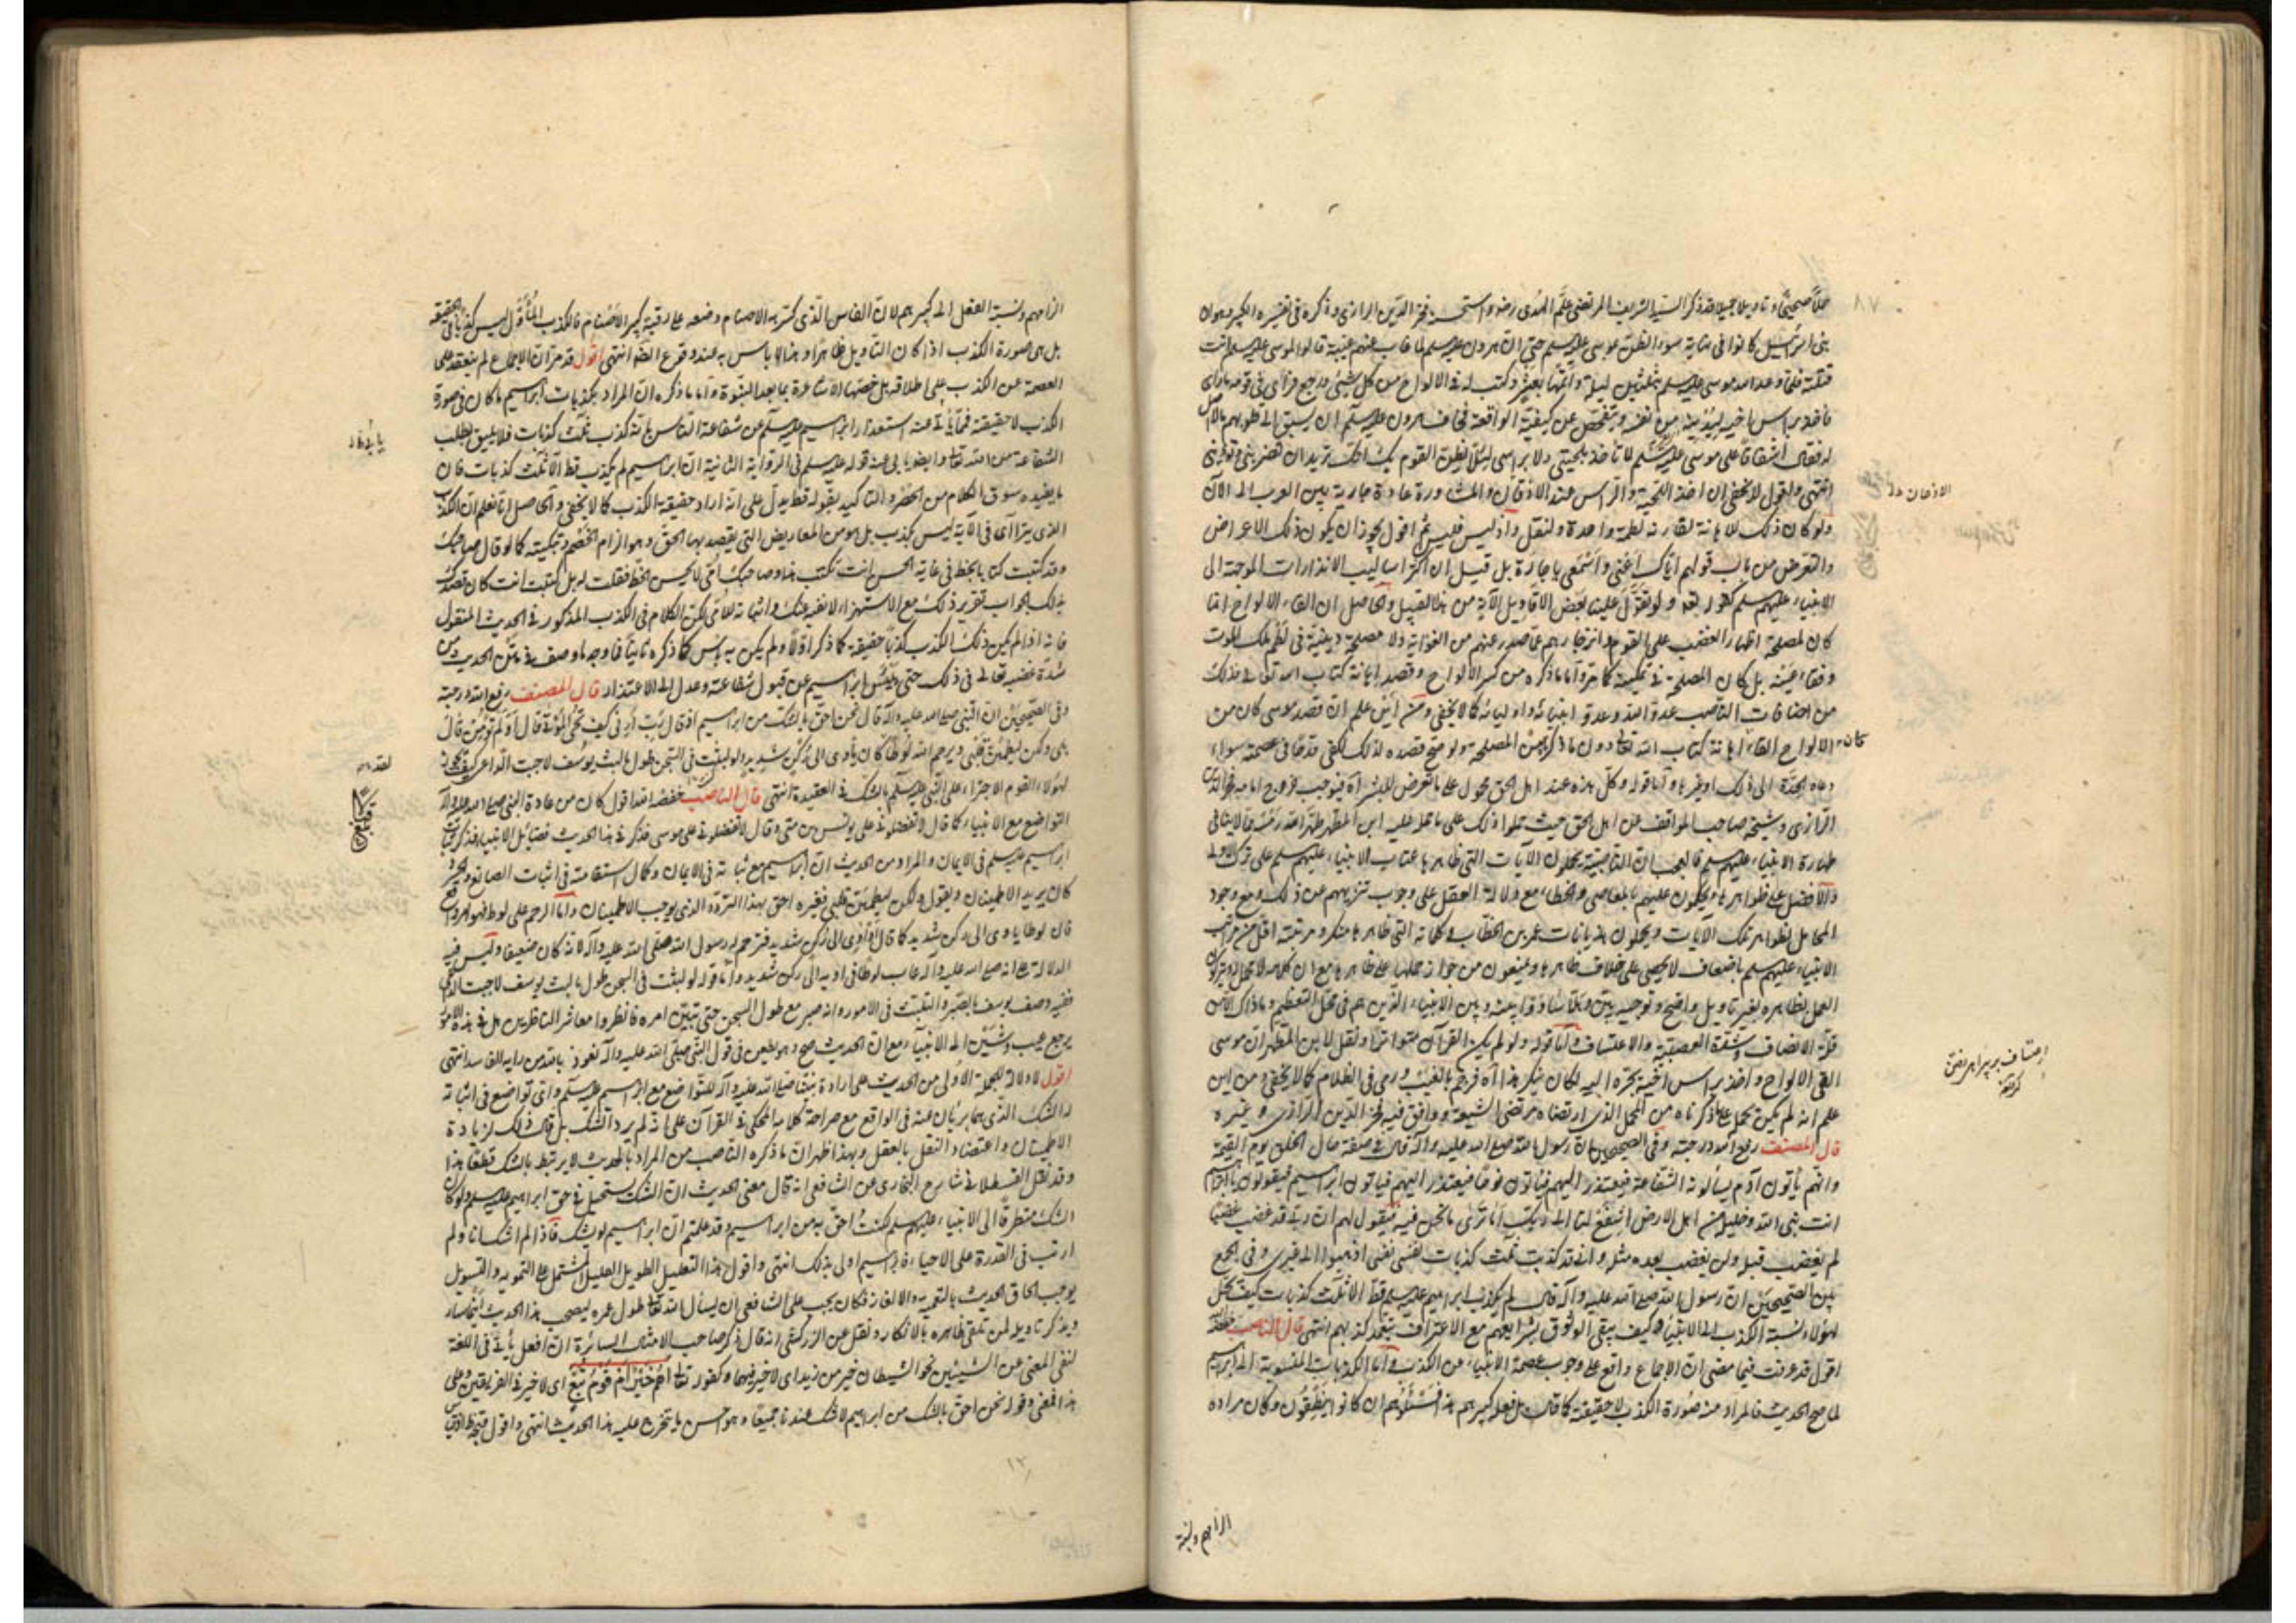 محملا صحيحا وتاويلا جميلا قد ذكره السيد الشريف المرتضى علم الهدى رضه واستحسنه فخر الدين الرازى وذكره فى تفسيره الكبير وهو ان
بنى اسرائيل كانوا فى نهاية سوء الظن بموسى عليه السلم حتى ان هرون عليه السلم لما غاب عنهم غيبة قالوا لموسى عليه السلم انت
قتلته فلما وعد الله موسى عليه السلم ثلثين ليلة واتمها بعشر وكتب له فى الالواح من كل شىء ورجع فراى فى قومه ما راى
فاخذ براس اخيه ليدنيه من نفسه ويتفحص عن كيفية الواقعة فخاف هرون عليه السلم ان يسبق الى قلوبهم ما لا اصل
له فقال اشفاقا على موسى عليه السلم لا تاخذ بلحيتى ولا براسى لئلا يظن القوم بك انك تريد ان تضربنى وتؤذينى
انتهى واقول لا يخفى ان اخذ اللحية والراس عند الاذقان والمشاورة عادة جارية بين العرب الى الآن
ولو كان ذلك للاهانة لقارنه لطمة واحدة ولنقل واذ ليس فليس ثم اقول يجوز ان يكون ذلك الاعراض
والتعرض من باب قولهم اياك اعنى واسمعى يا جارة بل قيل ان اكثر اساليب الانذارات الموجهة الى
الانبياء عليهم سلم كقوله تعه ولو تقول علينا بعض الاقاويل الآية من هذا القبيل والحاصل ان القاء الالواح انما
كان لمصلحة اظهار الغضب على القوم وانزجارهم عما صدر عنهم من الغواية ولا مصلحة دينية فى لطم ملك الموت
وفقاء عينه بل كان المصلحة فى تمكينه كما مر واما ما ذكره من كسر الالواح وقصد اهانة كتاب الله تعالى فذلك
من اضافات الناصب عدو الله وعدو انبيائه واوليائه كما لا يخفى ومن اين علم ان قصد موسى كان من
الالواح القاء اهانة كتاب الله تعالى دون ما ذكرنا من المصلحة ولو صح قصده لذلك لكفى قدحا فى عصمة سواء
دعاه الحدة الى ذلك او غيرها واما قوله وكل هذه عند اهل الحق محمول على ما تعرض للبشر اه فيوجب خروج امامه فخر الدين
الرازى وشيخه صاحب المواقف عن اهل الحق حيث حملوا ذلك على ما حمله عليه ابن المطهر طهر الله رمسه مما لا ينافى
طهارة الانبياء عليهم سلم فالعجب ان الناصبية يحملون الآيات التى ظاهرها عتاب الانبياء عليهم سلم على ترك الاولى
والافضل على ظواهرها ويحكمون عليهم بالمعاصى والخطاء مع دلالة العقل على وجوب تنزيههم عن ذلك ومع وجود
المحامل لظواهر تلك الآيات ويحملون هذيانات عمر بن الخطاب وكلماته التى ظاهرها منكر ومرتبته اقل من مراتب
الانبياء عليهم سلم باضعاف لا يحصى على خلاف ظاهرها ويمنعون من جواز حملها على ظاهرها مع ان كلامه لا محل له يترك
العمل بظاهره بغير تاويل واضح وتوجيه بين وهلا ساووا بينه وبين الانبياء الذين هم فى محل التعظيم وما ذاك الا من
قلة الانصاف وشدة العصبية والاعتساف واما قوله ولو لم يكن القرآن متواترا ونقل لابن المطهر ان موسى
القى الالواح واخذ براس اخيه يجره اليه لكان ينكر هذا اه فرجم بالغيب ورمى فى الظلام كما لا يخفى ومن اين
علم انه لم يكن يحمله على ما ذكرناه من المحمل الذى ارتضاه مرتضى الشيعة ووافق فيه فخر الدين الرازى وغيره
قال المصنف رفع الله درجته وفى الصحيحين ان رسول الله صلى الله عليه وآله قال فى صفة حال الخلق يوم القيمة
وانهم يأتون آدم يسألونه الشفاعة فيعتذر اليهم فيأتون نوحا فيعتذر اليهم فيأتون ابراهيم فيقولون يا ابراهيم
انت نبى الله وخليله من اهل الارض اشفع لنا الى ربك اما ترى ما نحن فيه فيقول لهم ان ربى قد غضب غضبا
لم يغضب قبله ولن يغضب بعده مثله وانى قد كذبت ثلث كذبات نفسى نفسى اذهبوا الى غيرى وفى الجمع
بين الصحيحين ان رسول الله صلى الله عليه وآله قال لم يكذب ابراهيم عليه سلم قط الا ثلث كذبات كيف يحل
لهؤلاء نسبة الكذب الى الانبياء وكيف يبقى الوثوق بشرايعهم مع الاعتراف بتعمد كذبهم انتهى قال الناصب خفضه الله
اقول قد عرفت فيما مضى ان الاجماع واقع على وجوب عصمة الانبياء عن الكذب واما الكذبات المنسوبة الى ابراهيم
لما صح الحديث فالمراد منه صورة الكذب لا حقيقته كما قال بل فعله كبيرهم هذا فسئلوهم ان كانوا ينطقون وكان مراده
الزامهم ونسبة
٨٧
الاذعان ظ
كان
اعتساف بر بيراهه رفتن
الزامهم ونسبة الفعل الى كبيرهم لان الفاس الذى كسر به الاصنام وضعه على رقبة كبير الاصنام فالكذب المأول ليس كذبا فى الحقيقة
بل هى صورة الكذب اذا كان التاويل ظاهرا وهذا لا باس به عند وقوع الضرورة انتهى اقول قد مر ان الاجماع لم ينعقد على
العصمة عن الكذب على اطلاقه بل خصتها الاشاعرة بما بعد النبوة واما ما ذكره ان المراد بكذبات ابراهيم ما كان فى صورة
الكذب لا حقيقته فمما يأبى عنه استعذار ابراهيم عليه السلم عن شفاعة الناس بانه كذب ثلث كذبات فلا يليق بطلب
الشفاعة من الله تعالى وايضا يابى عنه قوله عليه سلم فى الرواية الثانية ان ابراهيم لم يكذب قط الا ثلث كذبات فان
ما يفيده سوق الكلام من الحصر والتاكيد بقوله قط يدل على انه اراد حقيقة الكذب كما لا يخفى والحاصل انا نعلم ان الكذب
الذى يتراآى فى الآية ليس بكذب بل هو من المعاريض التى يقصد بها الحق وهو الزام الخصم وتبكيته كما لو قال صاحبك
وقد كتبت كتابا بخط فى غاية الحسن انت كتبت هذا وصاحبك امى لا يحسن الخط فقلت له بل كتبت انت كان قصدك
بذلك الجواب تقرير ذلك مع الاستهزاء لا نفيه عنك واثباته للامى لكن الكلام فى الكذب المذكور فى الحديث المنقول
فانه اذا لم يكن ذلك الكذب كذبا حقيقة كما ذكر اولا ولم يكن به بأس كما ذكره ثانيا فما وجه ما وصف فى متن الحديث من
شدة غضبه تعالى فى ذلك حتى يئس ابراهيم عن قبول شفاعته وعدل الى الاعتذار قال المصنف رفع الله درجته
وفى الصحيحين ان النبى صلى الله عليه وآله قال نحن احق بالشك من ابراهيم اذ قال رب ارنى كيف تحى الموتى قال اولم تؤمن قال
بلى ولكن ليطمئن قلبى ويرحم الله لوطا كان يأوى الى ركن شديد ولو لبثت فى السجن طول ما لبث يوسف لاجبت الداعى كيف يجوز
لهؤلاء القوم الاجتراء على النبى عليه سلم بالشك فى العقيدة انتهى قال الناصب خفضه الله اقول كان من عادة النبى صلى الله عليه وآله
التواضع مع الانبياء كما قال لا تفضلونى على يونس بن متى وقال لا تفضلونى على موسى فذكر فى هذا الحديث فضائل الانبياء فذكر ثبات
ابراهيم عليه سلم فى الايمان والمراد من الحديث ان ابراهيم مع ثباته فى الايمان وكمال استقامته فى اثبات الصانع
كان يريد الاطمينان ويقول ولكن ليطمئن قلبى فغيره احق بهذا التردد الذى يوجب الاطمينان واما الترحم على لوط فهو امر واقع
فان لوطا ياوى الى ركن شديد كما قال او آوى الى ركن شديد فترحم له رسول الله صلى الله عليه وآله لانه كان ضعيفا وليس فيه
الدلالة على انه صلى الله عليه وآله عاب لوطا فى اويه الى ركن شديد واما قوله لو لبثت فى السجن طول ما لبث يوسف لاجبت الداعى
ففيه وصف يوسف بالصبر والتثبت فى الامور وانه صبر مع طول السجن حتى تبين امره فانظروا معاشر الناظرين هل فى هذه الامور
يرجع عيب وشين الى الانبياء مع ان الحديث صح وهو طعن فى قول النبى صلى الله عليه وآله نعوذ بالله من رأيه الفاسد انتهى
اقول لا دلالة للجملة الاولى من الحديث على ارادة نبينا صلى الله عليه وآله للتواضع مع ابراهيم عليه سلم واى تواضع فى اثباته
له الشك الذى هما بريئان عنه فى الواقع مع صراحة كلامه المحكى فى القرآن على انه لم يرد الشك بل قال ذلك لزيادة
الاطمينان واعتضاد النقل بالعقل وبهذا ظهر ان ما ذكره الناصب من المراد بالحديث لا يرتبط بالشك قطعا هذا
وقد نقل القسطلانى شارح البخارى عن الشافعى انه قال معنى الحديث ان الشك يستحيل فى حق ابراهيم عليه سلم ولو كان
الشك متطرقا الى الانبياء عليهم سلم لكنت احق به من ابراهيم وقد علمتم ان ابراهيم لم يشك فاذا لم اشك انا ولم
ارتب فى القدرة على الاحياء فابراهيم اولى بذلك انتهى واقول هذا التعليل الطويل العليل المشتمل على التمويه والتسويل
يوجب الحاق الحديث بالتعمية والالغاز فكان يجب على الشافعى ان يسأل الله تعالى طول عمره ليصحب هذا الحديث اينما سار
ويذكر تاويله لمن تلقى ظاهره بالانكار ونقل عن الزركشى انه قال ذكر صاحب الامثال السائرة ان افعل يأتى فى اللغة
لنفى المعنى عن الشيئين نحو الشيطان خير من زيد اى لا خير فيهما وكقوله تعالى اهم خير ام قوم تبع اى لا خير فى الفريقين وعلى
هذا فمعنى قوله نحن احق بالشك من ابراهيم لا شك عندنا جميعا وهو احسن ما يتخرج عليه هذا الحديث انتهى واقول